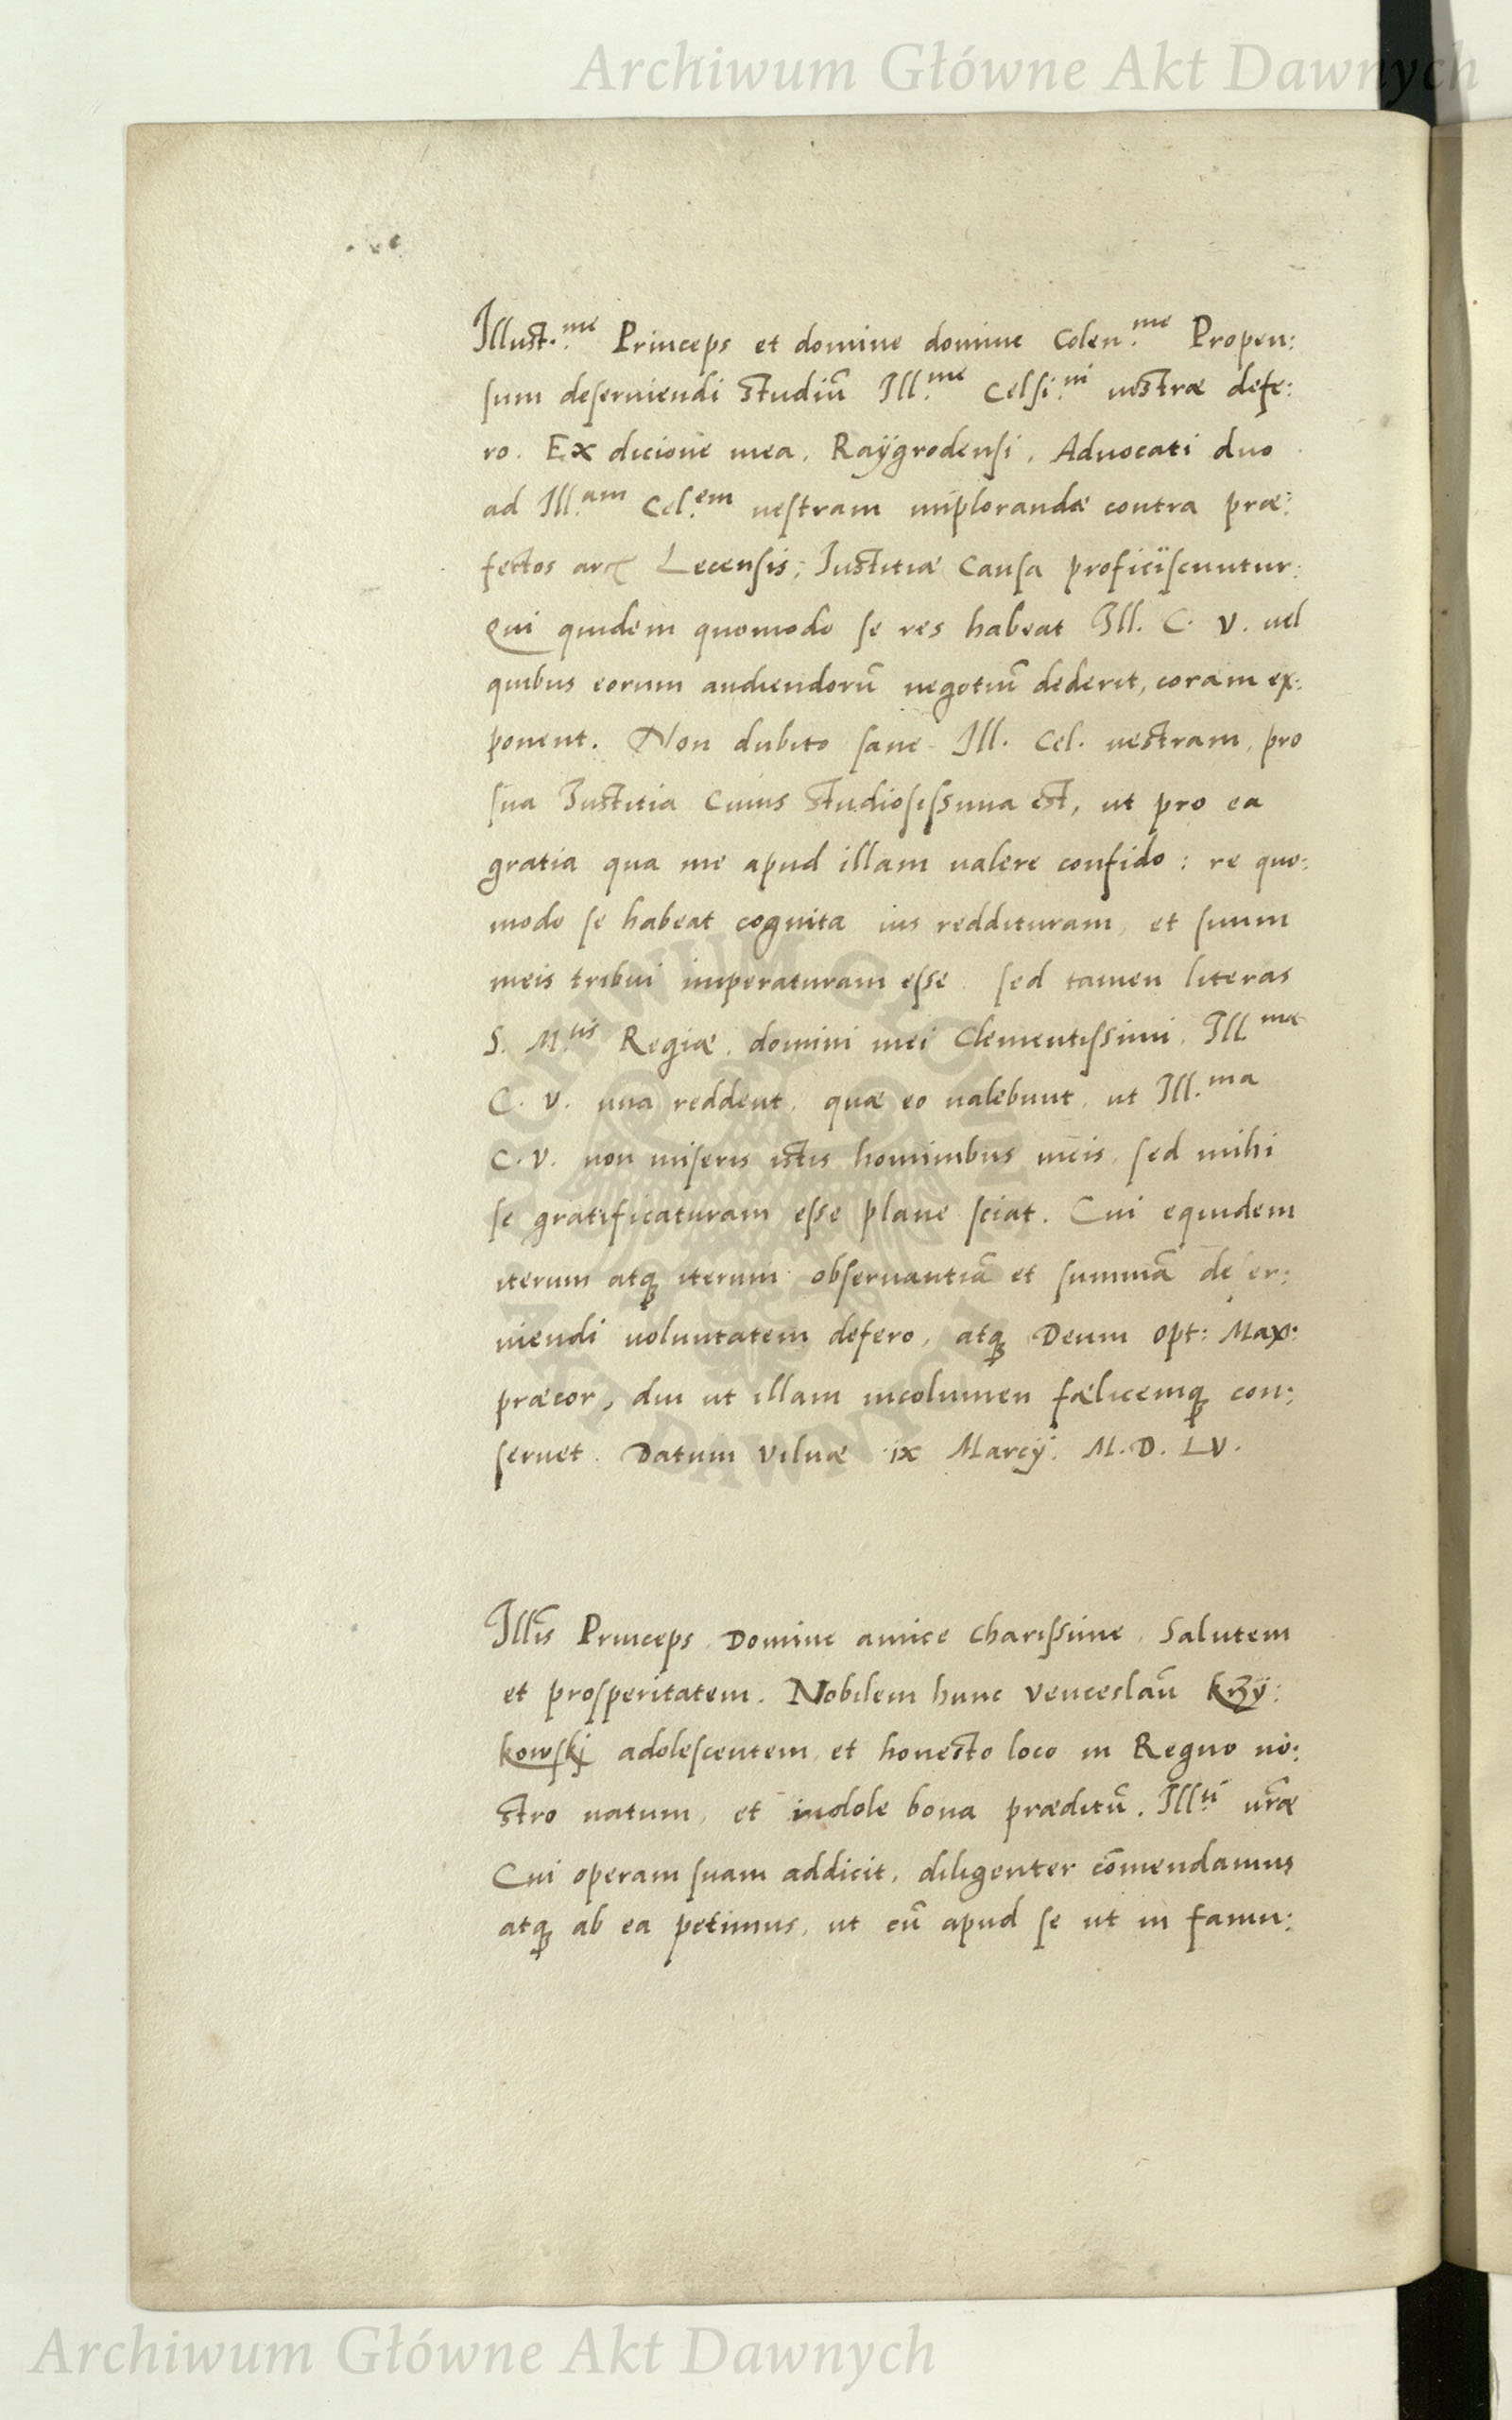 Archiwum Główne Akt Dawnych
Illust.me Princeps et domine domine Colen.me Propen:
sum deserviendi studiū Ill.me Celsi.ni vestræ defe:
ro. Ex dicione mea, Raÿgrodensi, Advocati duo
ad Ill.am Cel.em vestram implorandæ contra præ:
fectos Lecensis, Iustitiæ causa proficiscuntur:
Qui quidem quomodo se res habeat Ill. C. V. vel
quibus eorum audiendorū negotiū dederit, coram ex:
ponent. Non dubito sane Ill. Cel. vestram, pro
sua Iustitia cuius studiosissima est, ut pro ea
gratia qua me apud illam valere confido: re quo:
modo se habeat cognita ius reddituram, et suum
meis tribui imperaturam esse. sed tamen literas
S. M.tis Regiæ, domini mei Clementissimi, Ill.mæ
C. V. una reddent, quæ eo valebunt, ut Ill.ma
C. V. non miseris istis hominibus meis, sed mihi
se gratificaturam esse plane sciat. Cui equidem
iterum atq iterum observantiā et summā de er:
viendi voluntatem defero, atq Deum Opt: Max:
præcor, diu ut illam incolumen fælicemq con:
servet. Datum Vilnæ ix Marcÿ. M.D.LV.
Illīs Princeps Domine amice charissime, Salutem
et prosperitatem. Nobilem hunc Venceslaū Krzÿ:
kowskj adolescentem, et honesto loco in Regno no:
stro natum, et indole bona præditū. Ill.ti vr̄æ
Cui operam suam addicit, diligenter cōmendamus
atq ab ea petimus, ut eū apud se ut in famu:
ARCHIWUM GŁÓWNE
AKT DAWNYCH
Archiwum Główne Akt Dawnych